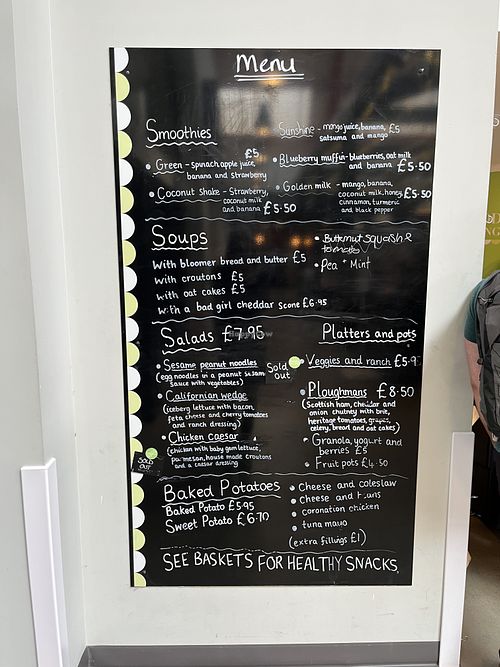 Menu
Smoothies
• Green - spinach, apple juice, £5
banana and strawberry
• Coconut Shake - Strawberry,
coconut milk
and banana £5.50
Sunshine - mango juice, banana, £5
satsuma and mango
• Blueberry muffin - blueberries, oat milk
and banana £5.50
• Golden milk - mango, banana,
coconut milk, honey £5.50
cinnamon, turmeric
and black pepper
Soups
With bloomer bread and butter £5
with croutons £5
with oat cakes £5
with a bad girl cheddar scone £6.95
• Butternut squash &
tomato
• Pea + Mint
Salads £7.95
• Sesame peanut noodles
(egg noodles in a peanut sesame
sauce with vegetables)
• Californian wedge
(iceberg lettuce with bacon,
feta cheese and cherry tomatoes
and ranch dressing)
• Chicken Caesar
(chicken with baby gem lettuce,
parmesan, house made croutons
and a caesar dressing
Sold
out
SOLD
OUT
Platters and pots
Veggies and ranch £5.9
• Ploughmans £8.50
(Scottish ham, cheddar and
onion chutney with brie,
heritage tomatoes, grapes,
celery, bread and oat cakes)
• Granola, yogurt and
berries £5
• Fruit pots £4.50
Baked Potatoes
Baked Potato £5.95
Sweet Potato £6.70
• Cheese and coleslaw
• Cheese and beans
• coronation chicken
• tuna mayo
(extra fillings £1)
SEE BASKETS FOR HEALTHY SNACKS